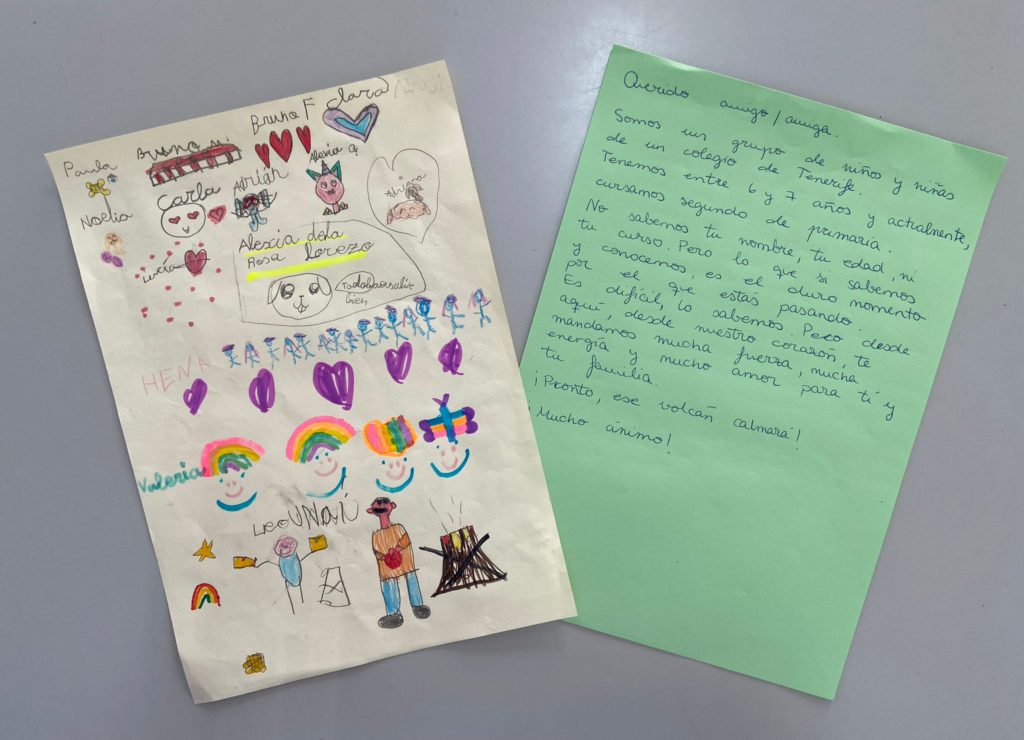 Paula
Bruno M
Bruno F
Clara
Noelia
Carla
Adrián
Alexia a
Adriana
Lucía
Alescia dela
Rosa lorezo
Todobaasalir
bien
HENA
Valeria
Leo
UNAI
Querido amigo/amiga.
Somos un grupo de niños y niñas
de un colegio de Tenerife.
Tenemos entre 6 y 7 años y actualmente,
cursamos segundo de primaria.
No sabemos tu nombre, tu edad, ni
tu curso. Pero lo que si sabemos
y conocemos, es el duro momento
por el que estás pasando.
Es difícil, lo sabemos. Pero desde
aquí, desde nuestro corazón, te
mandamos mucha fuerza, mucha
energía y mucho amor para tí y
tu familia.
¡Pronto, ese volcán calmará!
¡Mucho ánimo!